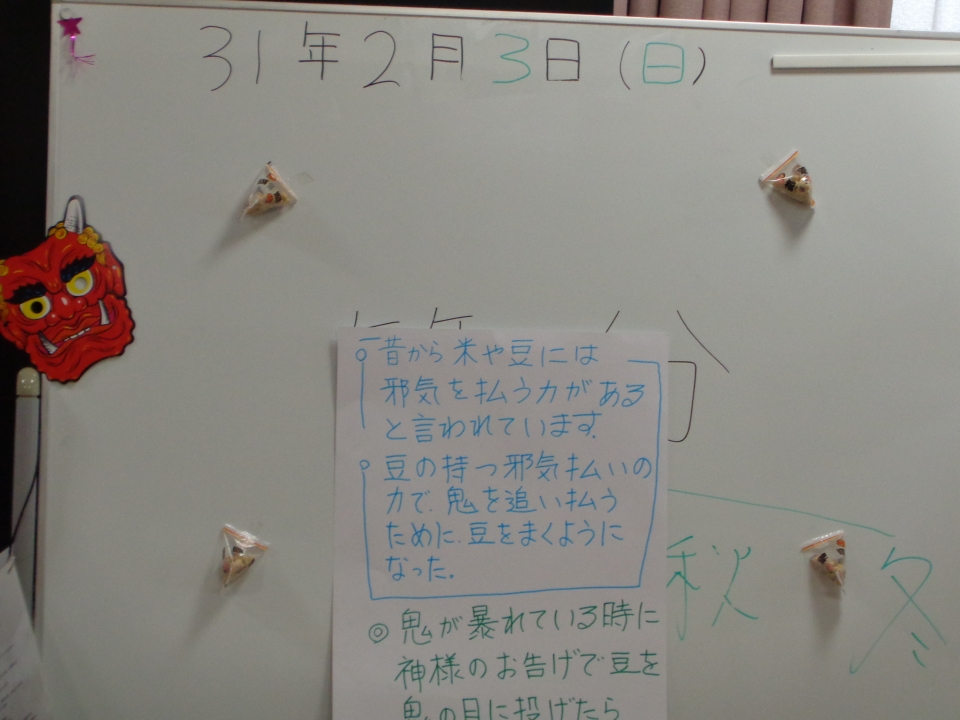 31年2月3日(日)
分
昔から米や豆には
邪気を払う力がある
と言われています。
豆の持つ邪気払いの
力で、鬼を追い払う
ために、豆をまくように
なった。
秋 冬
◎鬼が暴れている時に
神様のお告げで豆を
鬼の目に投げたら